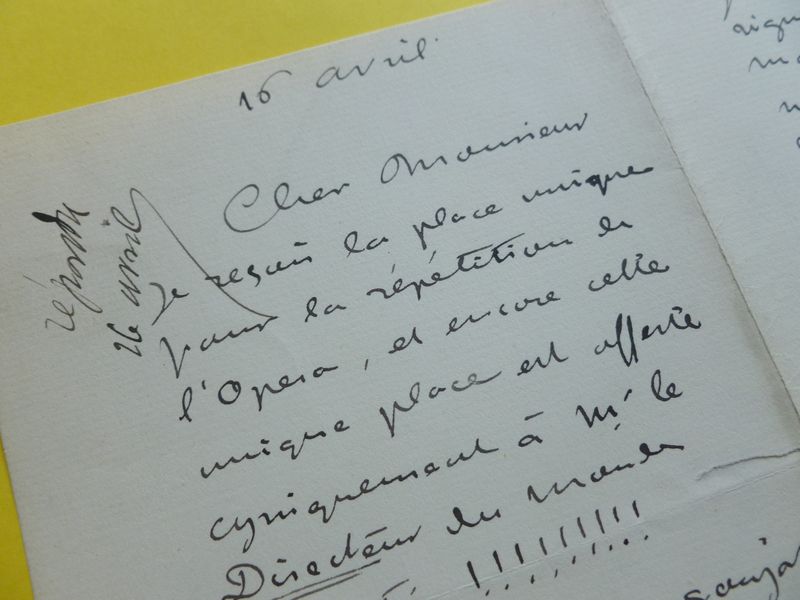 16 avril
répondu
26 avril
Cher Monsieur
Je reçois la place unique
pour la répétition de
l'Opera, et encore cette
unique place est offerte
cyniquement à Mr le
Directeur du monde
!!!!!!!!!